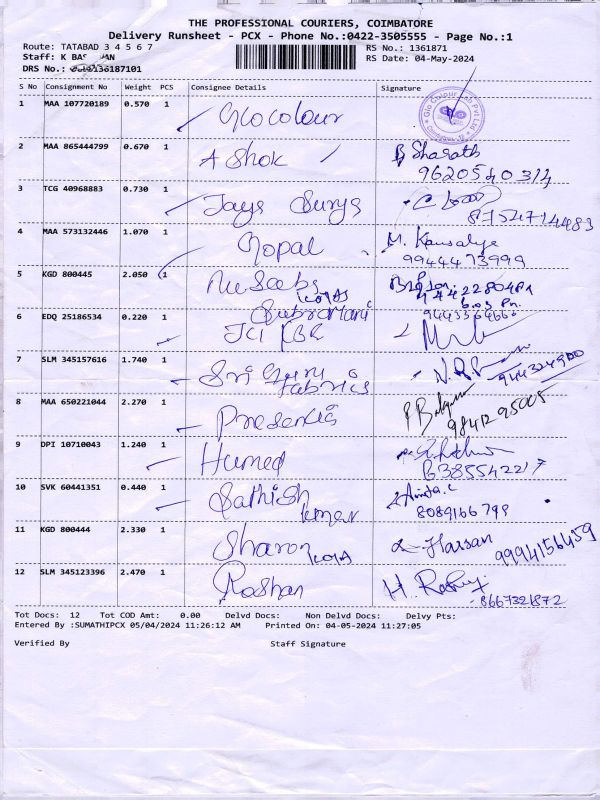 THE PROFESSIONAL COURIERS, COIMBATORE
Delivery Runsheet - PCX - Phone No.:0422-3505555 - Page No.:1
Route: TATABAD 3 4 5 6 7 RS No.: 1361871
Staff: K RS Date: 04-May-2024
DRS No.:
S No Consignment No Weight PCS Consignee Details Signature
1 MAA 107720189 0.570 1 Glocolour
2 MAA 865444799 0.670 1 Ashok B Sharath
9620540314
3 TCG 40968883 0.730 1 Jaya Surya
8754714483
4 MAA 573132446 1.070 1 Gopal M. Kausalya
9944473999
5 KGD 800445 2.050 1
6 EDQ 25186534 0.220 1
7 SLM 345157616 1.740 1 Sri Guru
fabrics
8 MAA 650221044 2.270 1
9 DPI 10710043 1.240 1 Humed
6385542217
10 SVK 60441351 0.440 1 Sathish
kumar
8089166799
11 KGD 800444 2.330 1 Sharon Hassan 9994156459
12 SLM 345123396 2.470 1 Roshan
8667321872
Tot Docs: 12 Tot COD Amt: 0.00 Delvd Docs: Non Delvd Docs: Delvy Pts:
Entered By :SUMATHIPCX 05/04/2024 11:26:12 AM Printed On: 04-05-2024 11:27:05
Verified By Staff Signature